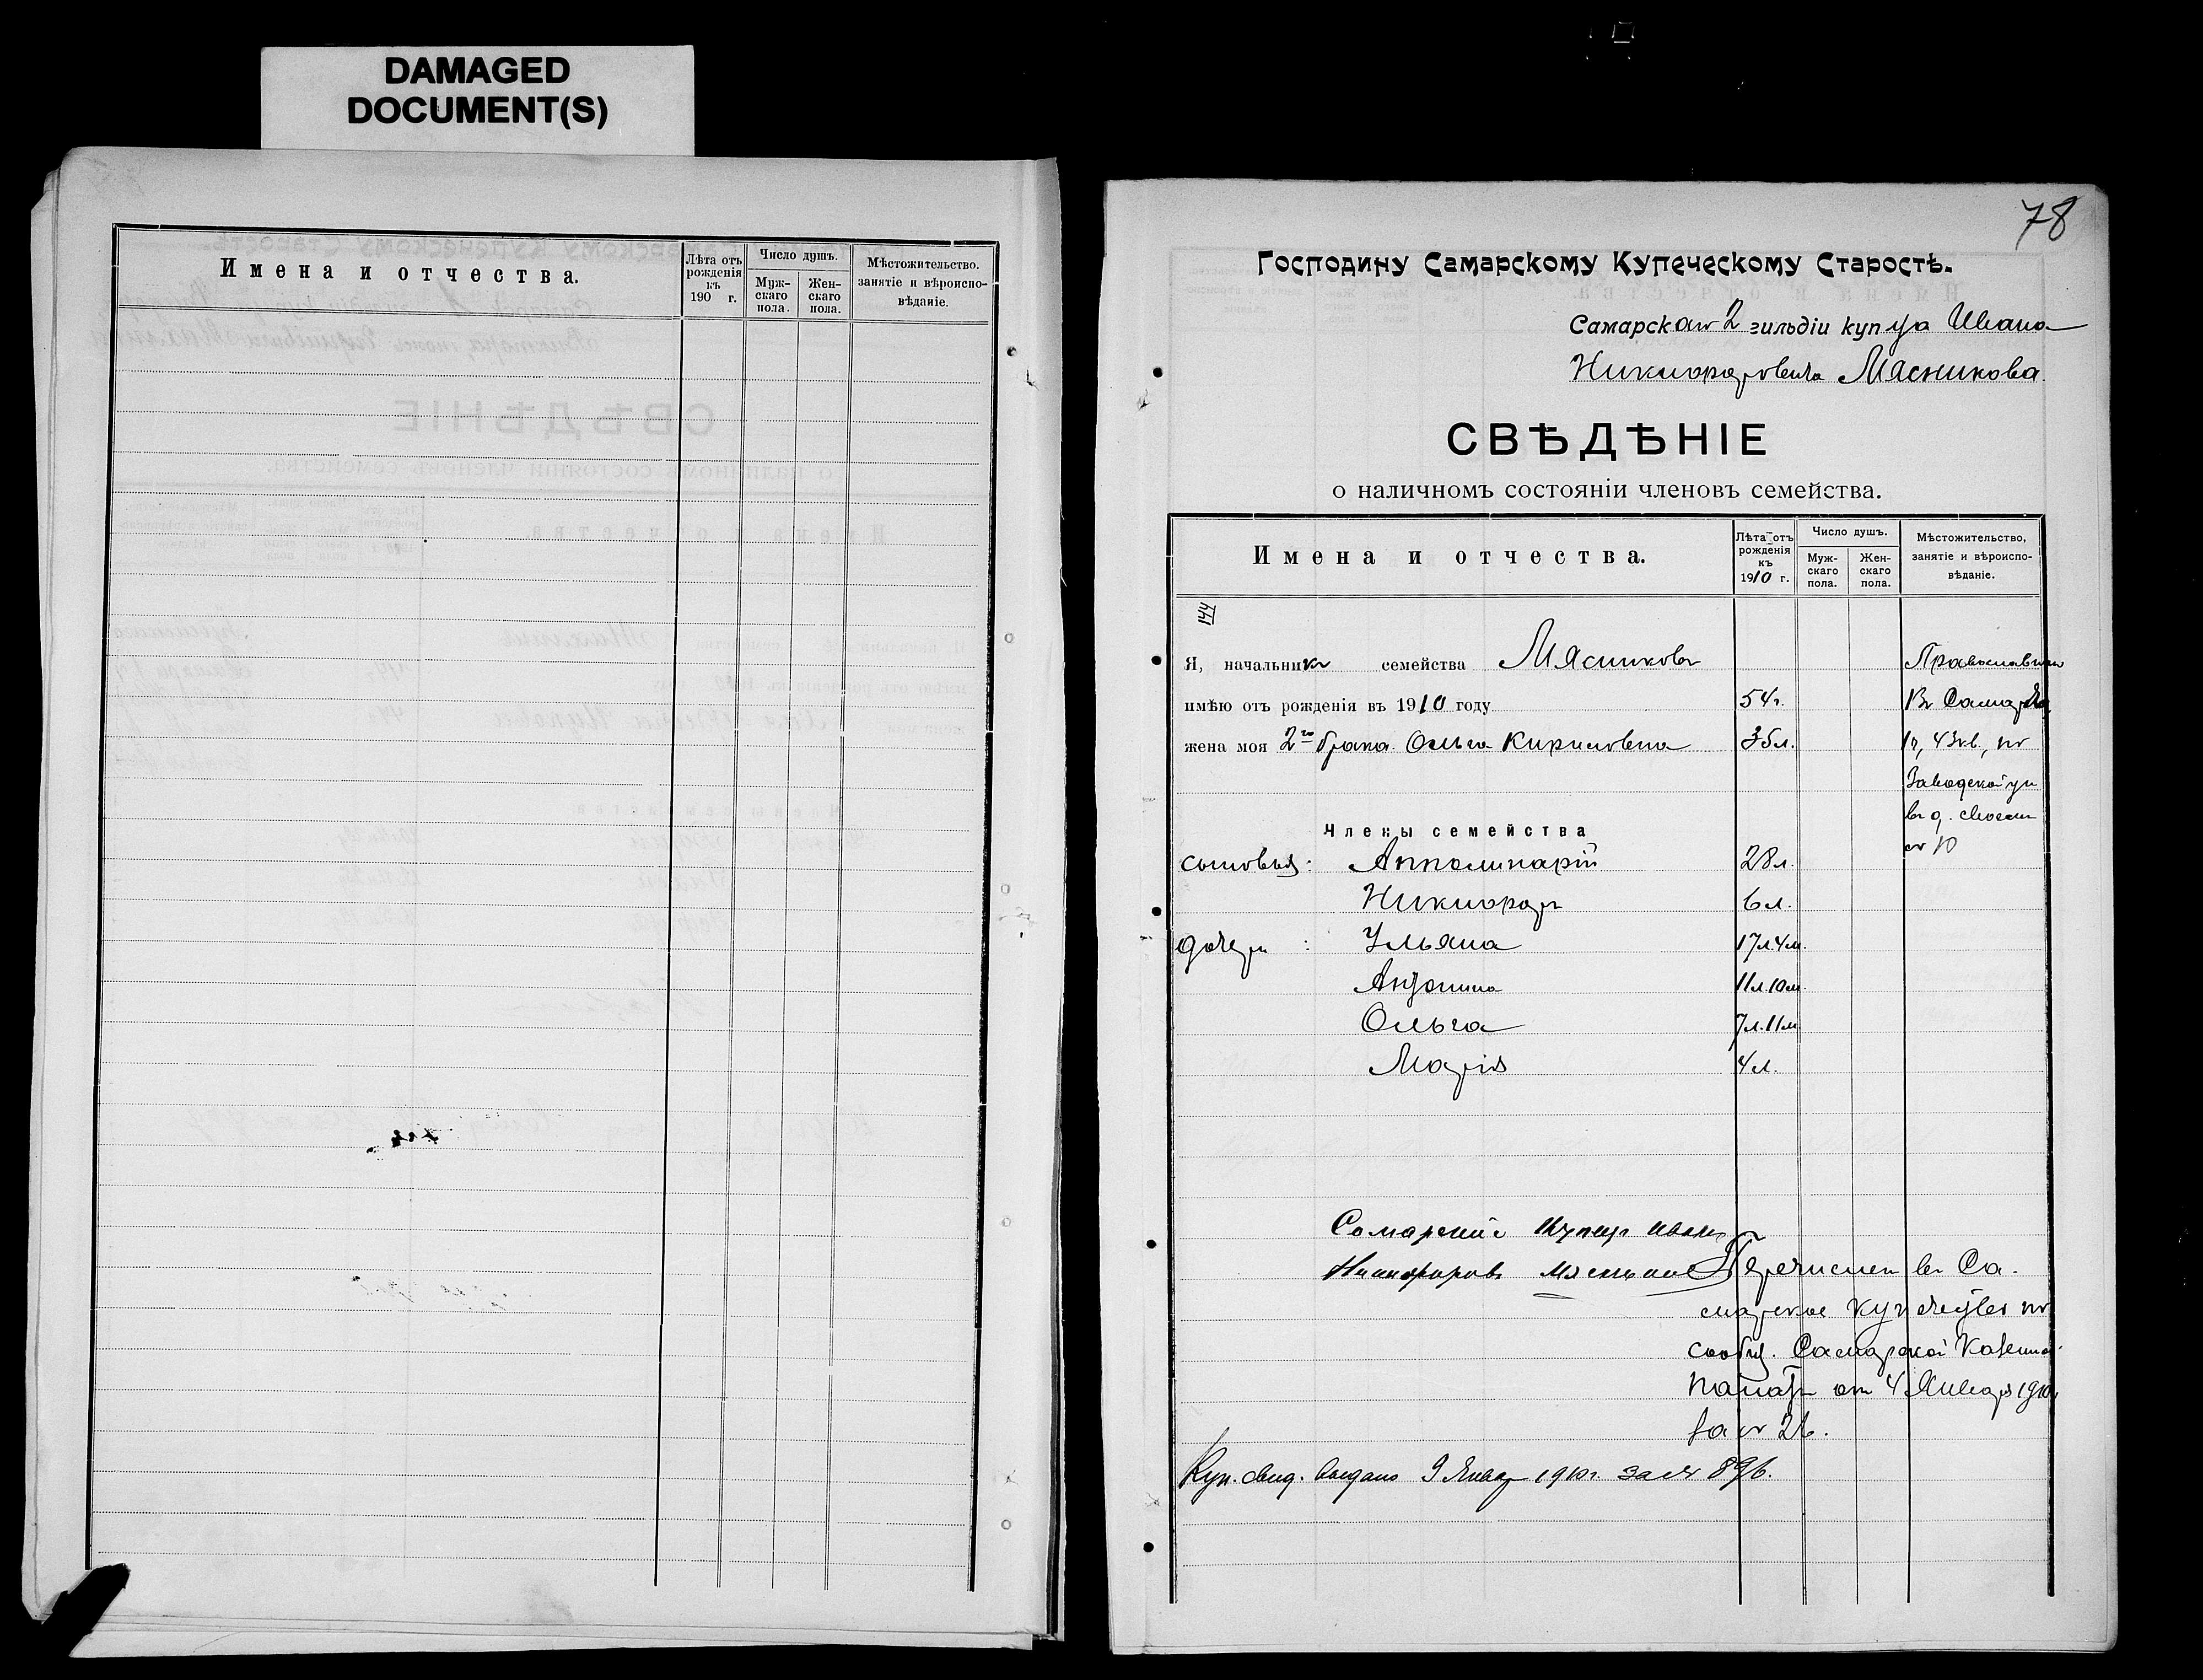 DAMAGED
DOCUMENT(S)
Имена и отчества.
Лѣта отъ рожденія къ 190 г.
Число душъ.
Муж-скаго пола.
Жен-скаго пола.
Мѣстожительство. занятіе и вѣроиспо-вѣданіе.
78
Господину Самарскому Купеческому Старостѣ.
Самарскаго 2 гильдіи купца Ивана
Никифоровича Мясникова.
СВѢДѢНІЕ
о наличномъ состояніи членовъ семейства.
Имена и отчества.
Лѣта отъ рожденія къ 1910 г.
Число душъ.
Муж-скаго пола.
Жен-скаго пола.
Мѣстожительство, занятіе и вѣроиспо-вѣданіе.
144
Я, начальникъ семейства Мясниковъ Православнаго
имѣю отъ рожденія въ 1910 году 54 г. Въ Самарѣ,
жена моя 2го брака Ольга Кириловна 35 л. 4 кв., по
Заводской ул
въ д. своемъ
Члены семейства
№ 10
сыновья: Апполинарій 28 л.
Никифоръ 6 л.
дочери: Ульяна 17 л. 4 м.
Антонина 11 л. 10 м.
Ольга 7 л. 11 м.
Марія 4 л.
Самарскій Купецъ Иванъ
Никифоровъ Мясниковъ
Перечисленъ въ Са-
марское купечество по
сообщ. Самарской Казенной
Палаты отъ 4 Января 1910 г.
за № 26.
Куп. свид. выдано 9 Января 1910 г. за № 896.